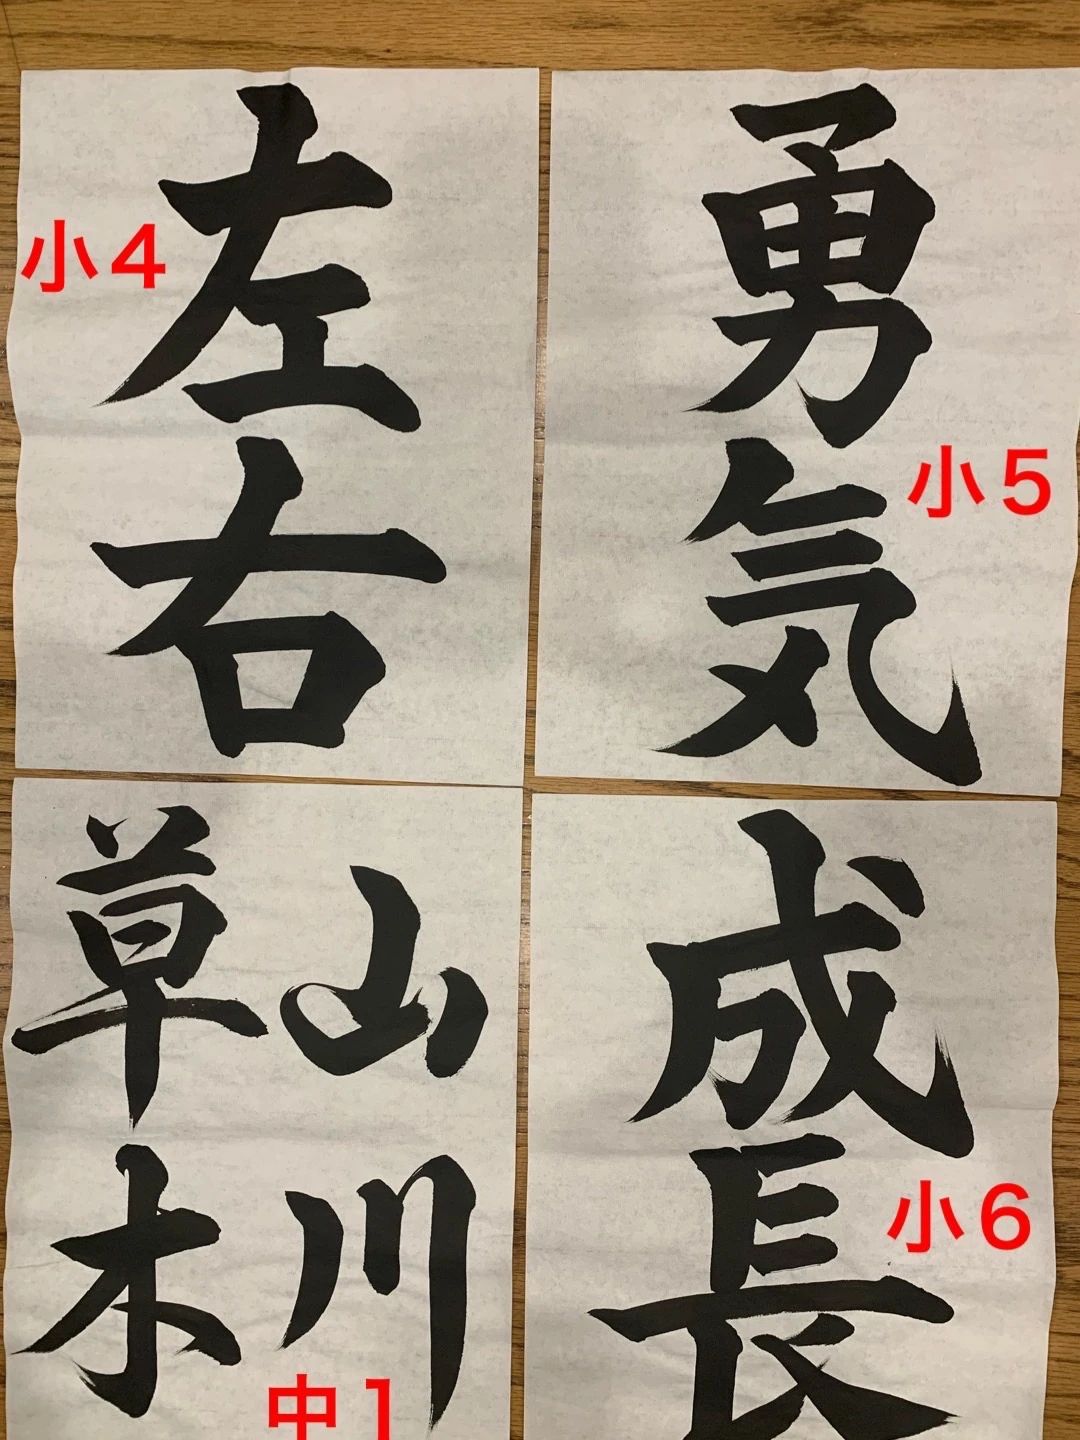 左右
小4
勇気
小5
山川
草木
中1
成長
小6